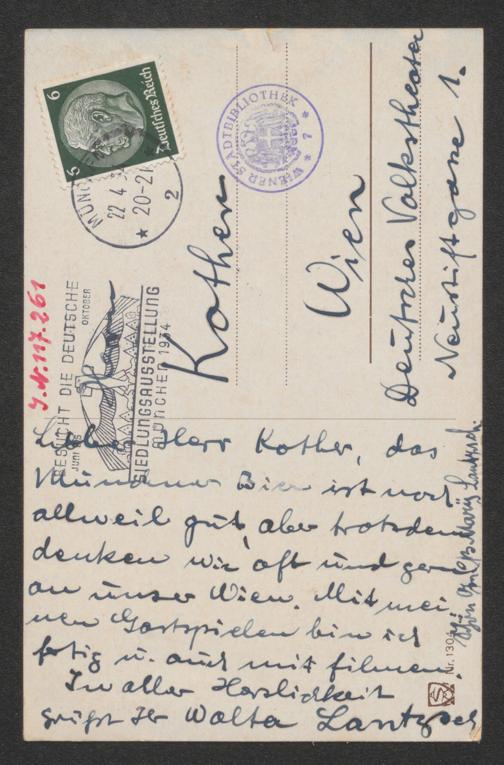 6
Deutsches Reich
6
MÜNCHEN
22 4
20-21
2
WIENER STADTBIBLIOTHEK
* 7 *
BESUCHT DIE DEUTSCHE
JUNI BIS OKTOBER
SIEDLUNGSAUSSTELLUNG
MÜNCHEN 1934
J.N. 117.261
Herrn
Kother
Wien
Deutsches Volkstheater
Neustiftgasse 1.
Lieber Herr Kother, das
Münchner Bier ist noch
allweil gut, aber trotzdem
denken wir oft und gern
an unser Wien. Mit mei-
nen Gastspielen bin ich
fertig u. auch mit filmen.
In aller Herzlichkeit
grüßt Ihr Walter Lantzsch
Lantzsch
Nr. 130